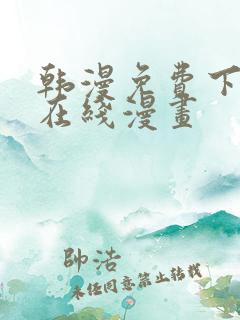 韩漫免费下
在线漫畫
帥浩
未经同意禁止转载